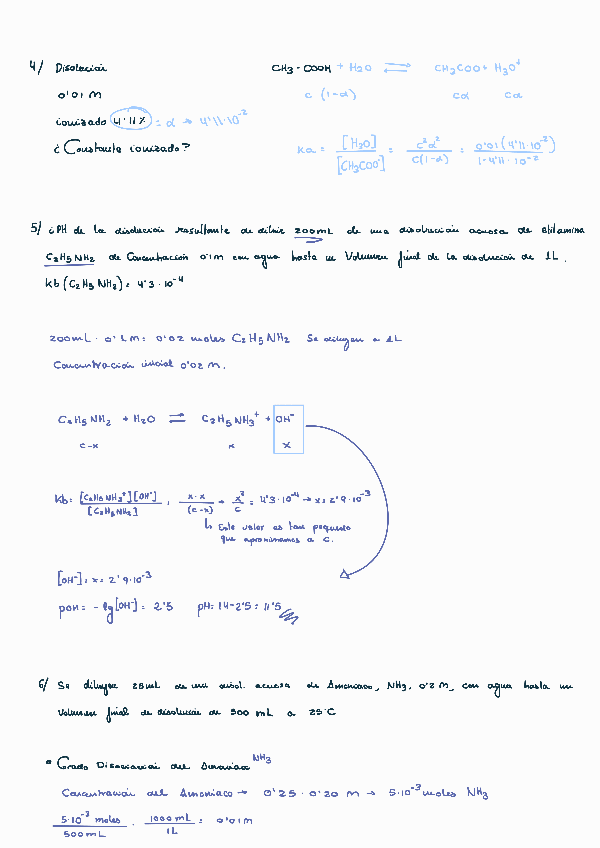 4/ Disolución CH3-COOH + H2O ⇌ CH3COO+ H3O+
0'01 M c (1-α) cα cα
ionizado 4'11% = α → 4'11·10^-2
¿Constante ionizado? Ka = [H2O]/[CH3COO^-] = c²α²/C(1-α) = 0'01(4'11·10^-2)/1-4'11·10^-2
5/ ¿PH de la disolución resultante de diluir 200mL de una disolución acuosa de etilamina
C2H5NH2 de Concentración 0'1M con agua hasta un Volumen final de la disolución de 1L.
Kb (C2H5NH2) = 4'3·10^-4
200mL · 0'1M = 0'02 moles C2H5NH2 Se diluyen a 1L
Concentración inicial 0'02 M.
C2H5NH2 + H2O ⇌ C2H5NH3+ + OH-
c-x x x
Kb = [C2H5NH3+][OH-]/[C2H5NH2] = x·x/(c-x) → x²/c = 4'3·10^-4 → x = 2'9·10^-3
↳ Este valor es tan pequeño
que aproximamos a c.
[OH-] = x = 2'9·10^-3
pOH = -lg[OH-] = 2'5 pH = 14-2'5 = 11'5
6/ Se diluyen 25mL de una disol. acuosa de Amoniaco, NH3, 0'2 M, con agua hasta un
Volumen final de disolución de 500 mL a 25°C
• Grado Disociación del Amoniaco NH3
Concentración del Amoniaco → 0'25 · 0'20 M → 5·10^-3 moles NH3
5·10^-3 moles/500mL · 1000mL/1L = 0'01M